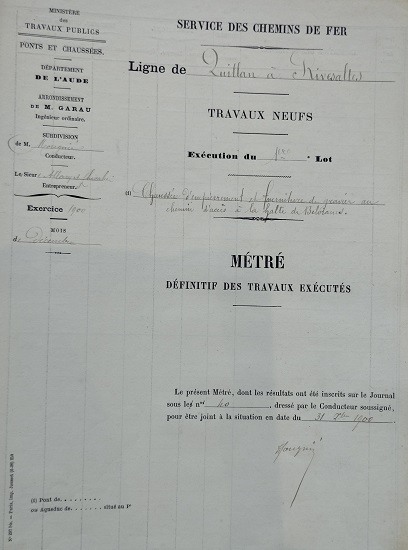 MINISTÈRE
des
TRAVAUX PUBLICS
PONTS ET CHAUSSÉES.
DÉPARTEMENT
DE L'AUDE
ARRONDISSEMENT
DE M. GARAU
Ingénieur ordinaire.
SUBDIVISION
de M.
Conducteur.
Le Sieur
Entrepreneur
Exercice 1900
MOIS
de Décembre
SERVICE DES CHEMINS DE FER
Ligne de Quillan à Rivesaltes
TRAVAUX NEUFS
Exécution du 1er Lot
(1) Chaussée d'empierrement et fourniture de gravier au
chemin d'accès à la halte de
MÉTRÉ
DÉFINITIF DES TRAVAUX EXÉCUTÉS
Le présent Métré, dont les résultats ont été inscrits sur le Journal
sous les nos 40, dressé par le Conducteur soussigné,
pour être joint à la situation en date du 31 Xbre 1900
(1) Pont de
ou Aqueduc de situé au Pt